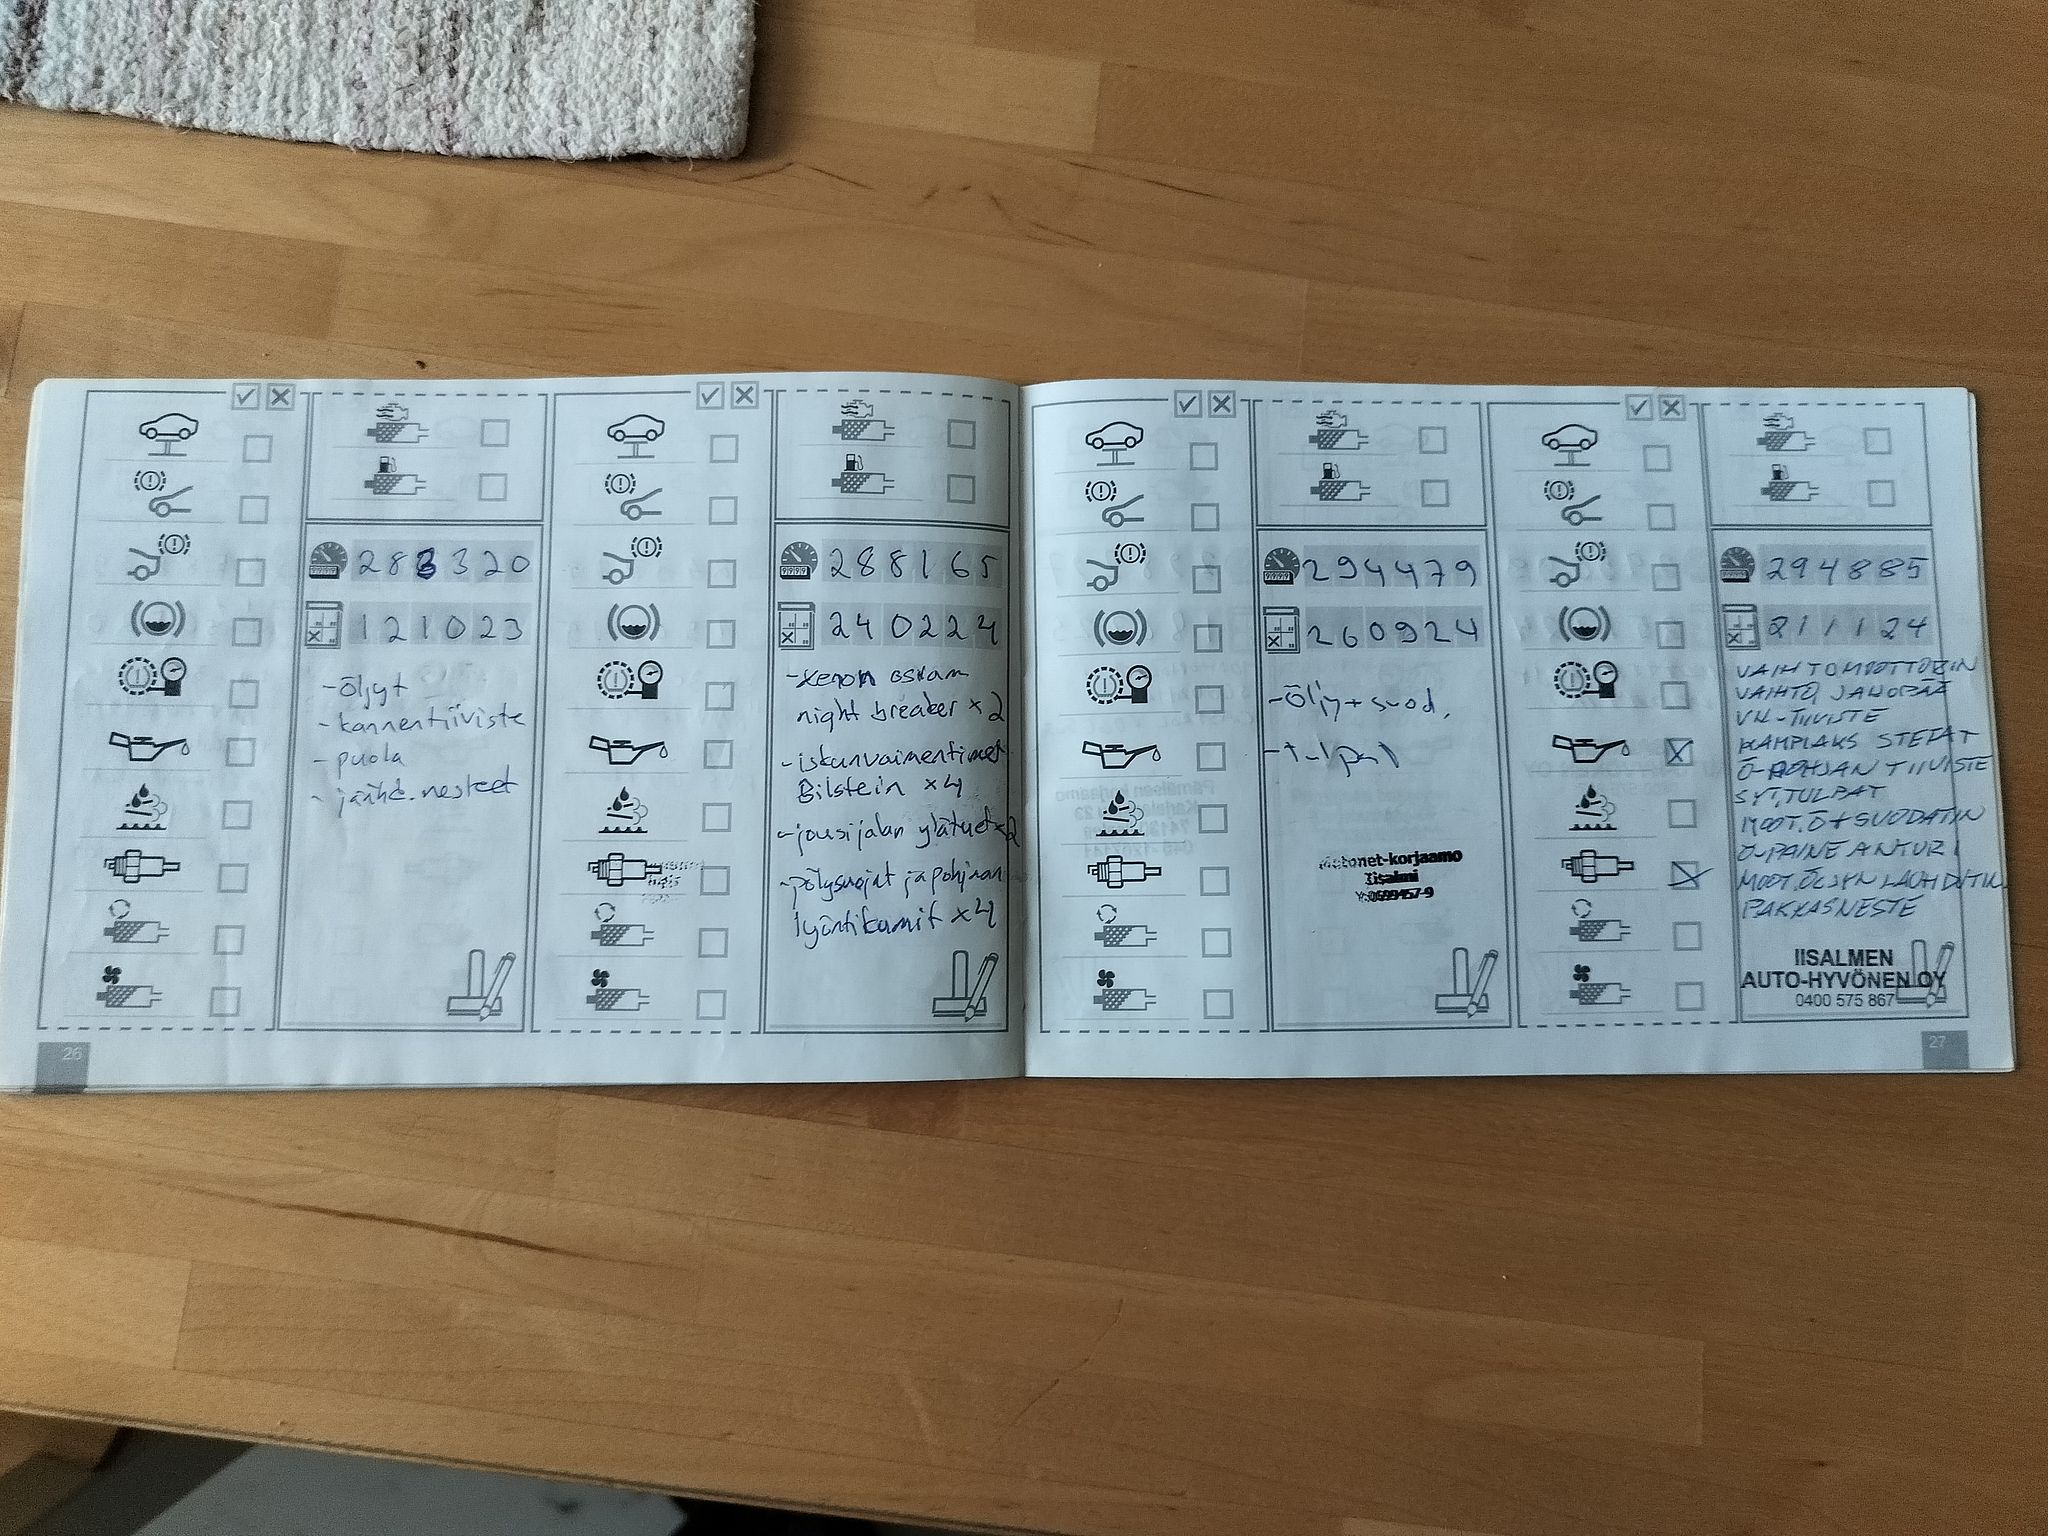 283320
121023
-öljyt
-kannentiiviste
-puola
- jäähd. nesteet
26
288165
240224
-xenon osram
night breaker x2
-iskunvaimentimet
Bilstein x4
-jousijalan ylätuet x2
-pölysuojat ja pohjaan
lyöntikumit x4
294479
260924
-Öljy+suod.
-tulpat
Motonet-korjaamo
Iisalmi
Y:0699457-9
294885
211124
VAIHTOMOOTTORIN
VAIHTO, JAKOPÄÄ
VK-TIIVISTE
KAMPIAKS STEFAT
Ö-POHJAN TIIVISTE
SYT.TULPAT
MOOT.Ö+SUODATIN
Ö-PAINE ANTURI
MOOT.ÖLJYN LAUHDUTIN
PAKKASNESTE
IISALMEN
AUTO-HYVÖNEN OY
0400 575 867
27